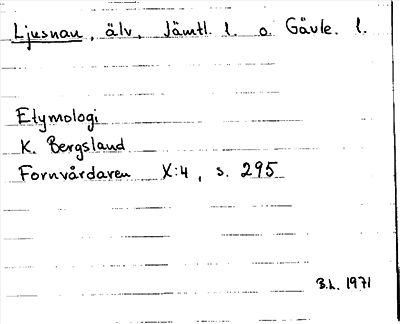 Ljusnan, älv, Jämtl. l. o. Gävle. l.
Etymologi
K. Bergsland
Fornvårdaren X:4, s. 295
B.L. 1971